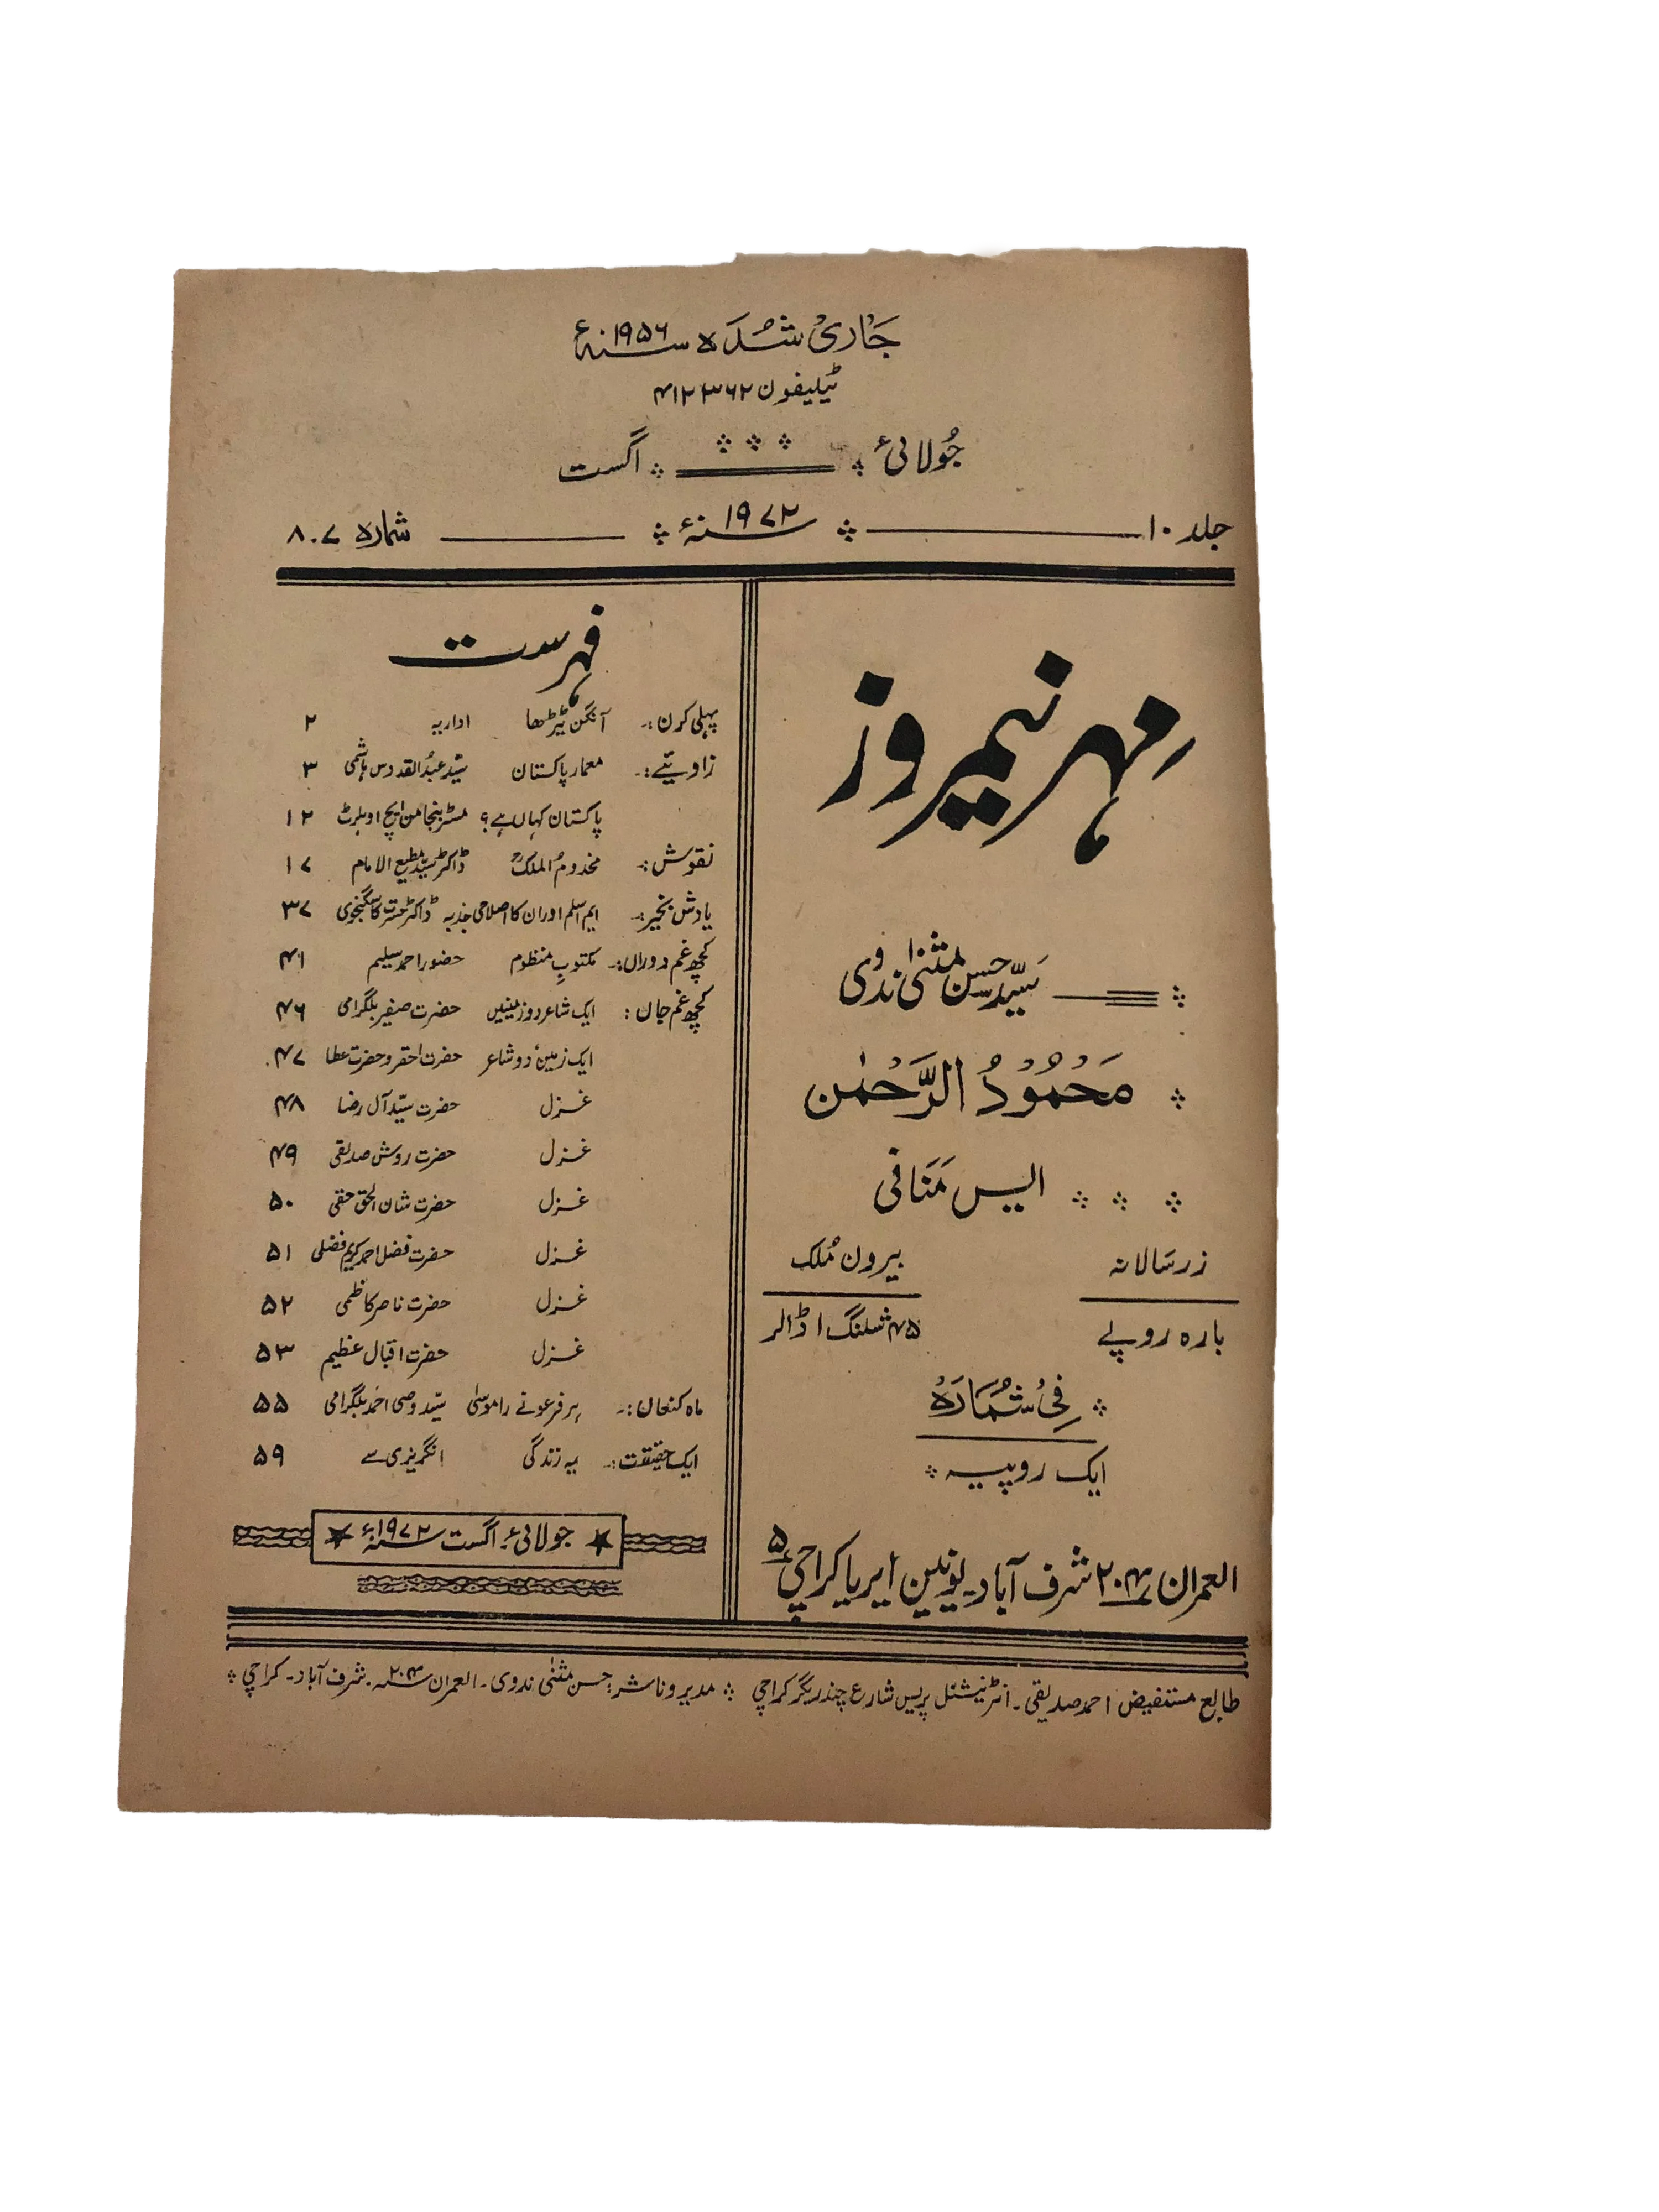 جاری شدہ سنہ ۱۹۵۶ء
ٹیلیفون ۴۱۲۳۶۲
جولائی اگست
جلد ۱۰ سنہ ۱۹۷۲ء شمارہ ۷۔۸
مہر نیمروز
سید حسن مثنیٰ ندوی
محمود الرحمٰن
ایس منافی
زر سالانہ بیرون ملک
بارہ روپے ۴۵ شلنگ ۱ ڈالر
فی شمارہ
ایک روپیہ
العمران ۲۰۴ شرف آباد۔ یونین ایریا کراچی ۵
فہرست
پہلی کرن:۔ آنگن ٹیڑھا اداریہ ۲
زاویئے:۔ معمار پاکستان سید عبدالقدوس ہاشمی ۳
پاکستان کہاں ہے؟ مسٹر بنجامن ایچ اوہلرٹ ۱۲
نقوش:۔ مخدوم الملکؒ ڈاکٹر سید مطیع الامام ۱۷
یادش بخیر:۔ ایم اسلم اور ان کا اصلاحی جذبہ ڈاکٹر حسرت کاسگنجوی ۳۷
کچھ غم دوراں:۔ مکتوبِ منظوم حضور احمد سلیم ۴۱
کچھ غم جاں: ایک شاعر دو زمینیں حضرت صفیر بلگرامی ۴۶
ایک زمین دو شاعر حضرت احقر و حضرت عطا ۴۷
غزل حضرت سید آل رضا ۴۸
غزل حضرت روش صدیقی ۴۹
غزل حضرت شان الحق حقی ۵۰
غزل حضرت فضل احمد کریم فضلی ۵۱
غزل حضرت ناصر کاظمی ۵۲
غزل حضرت اقبال عظیم ۵۳
ماہ کنعان:۔ ہر فرعونے را موسیٰ سید وصی احمد بلگرامی ۵۵
ایک حقیقت:۔ یہ زندگی انگریزی سے ۵۹
جولائی۔ اگست سنہ ۱۹۷۲ء
طابع مستفیض احمد صدیقی۔ انٹرنیشنل پریس شارع چندریگر کراچی مدیر و ناشر: حسن مثنیٰ ندوی۔ العمران ۲۰۴۔ شرف آباد۔ کراچی